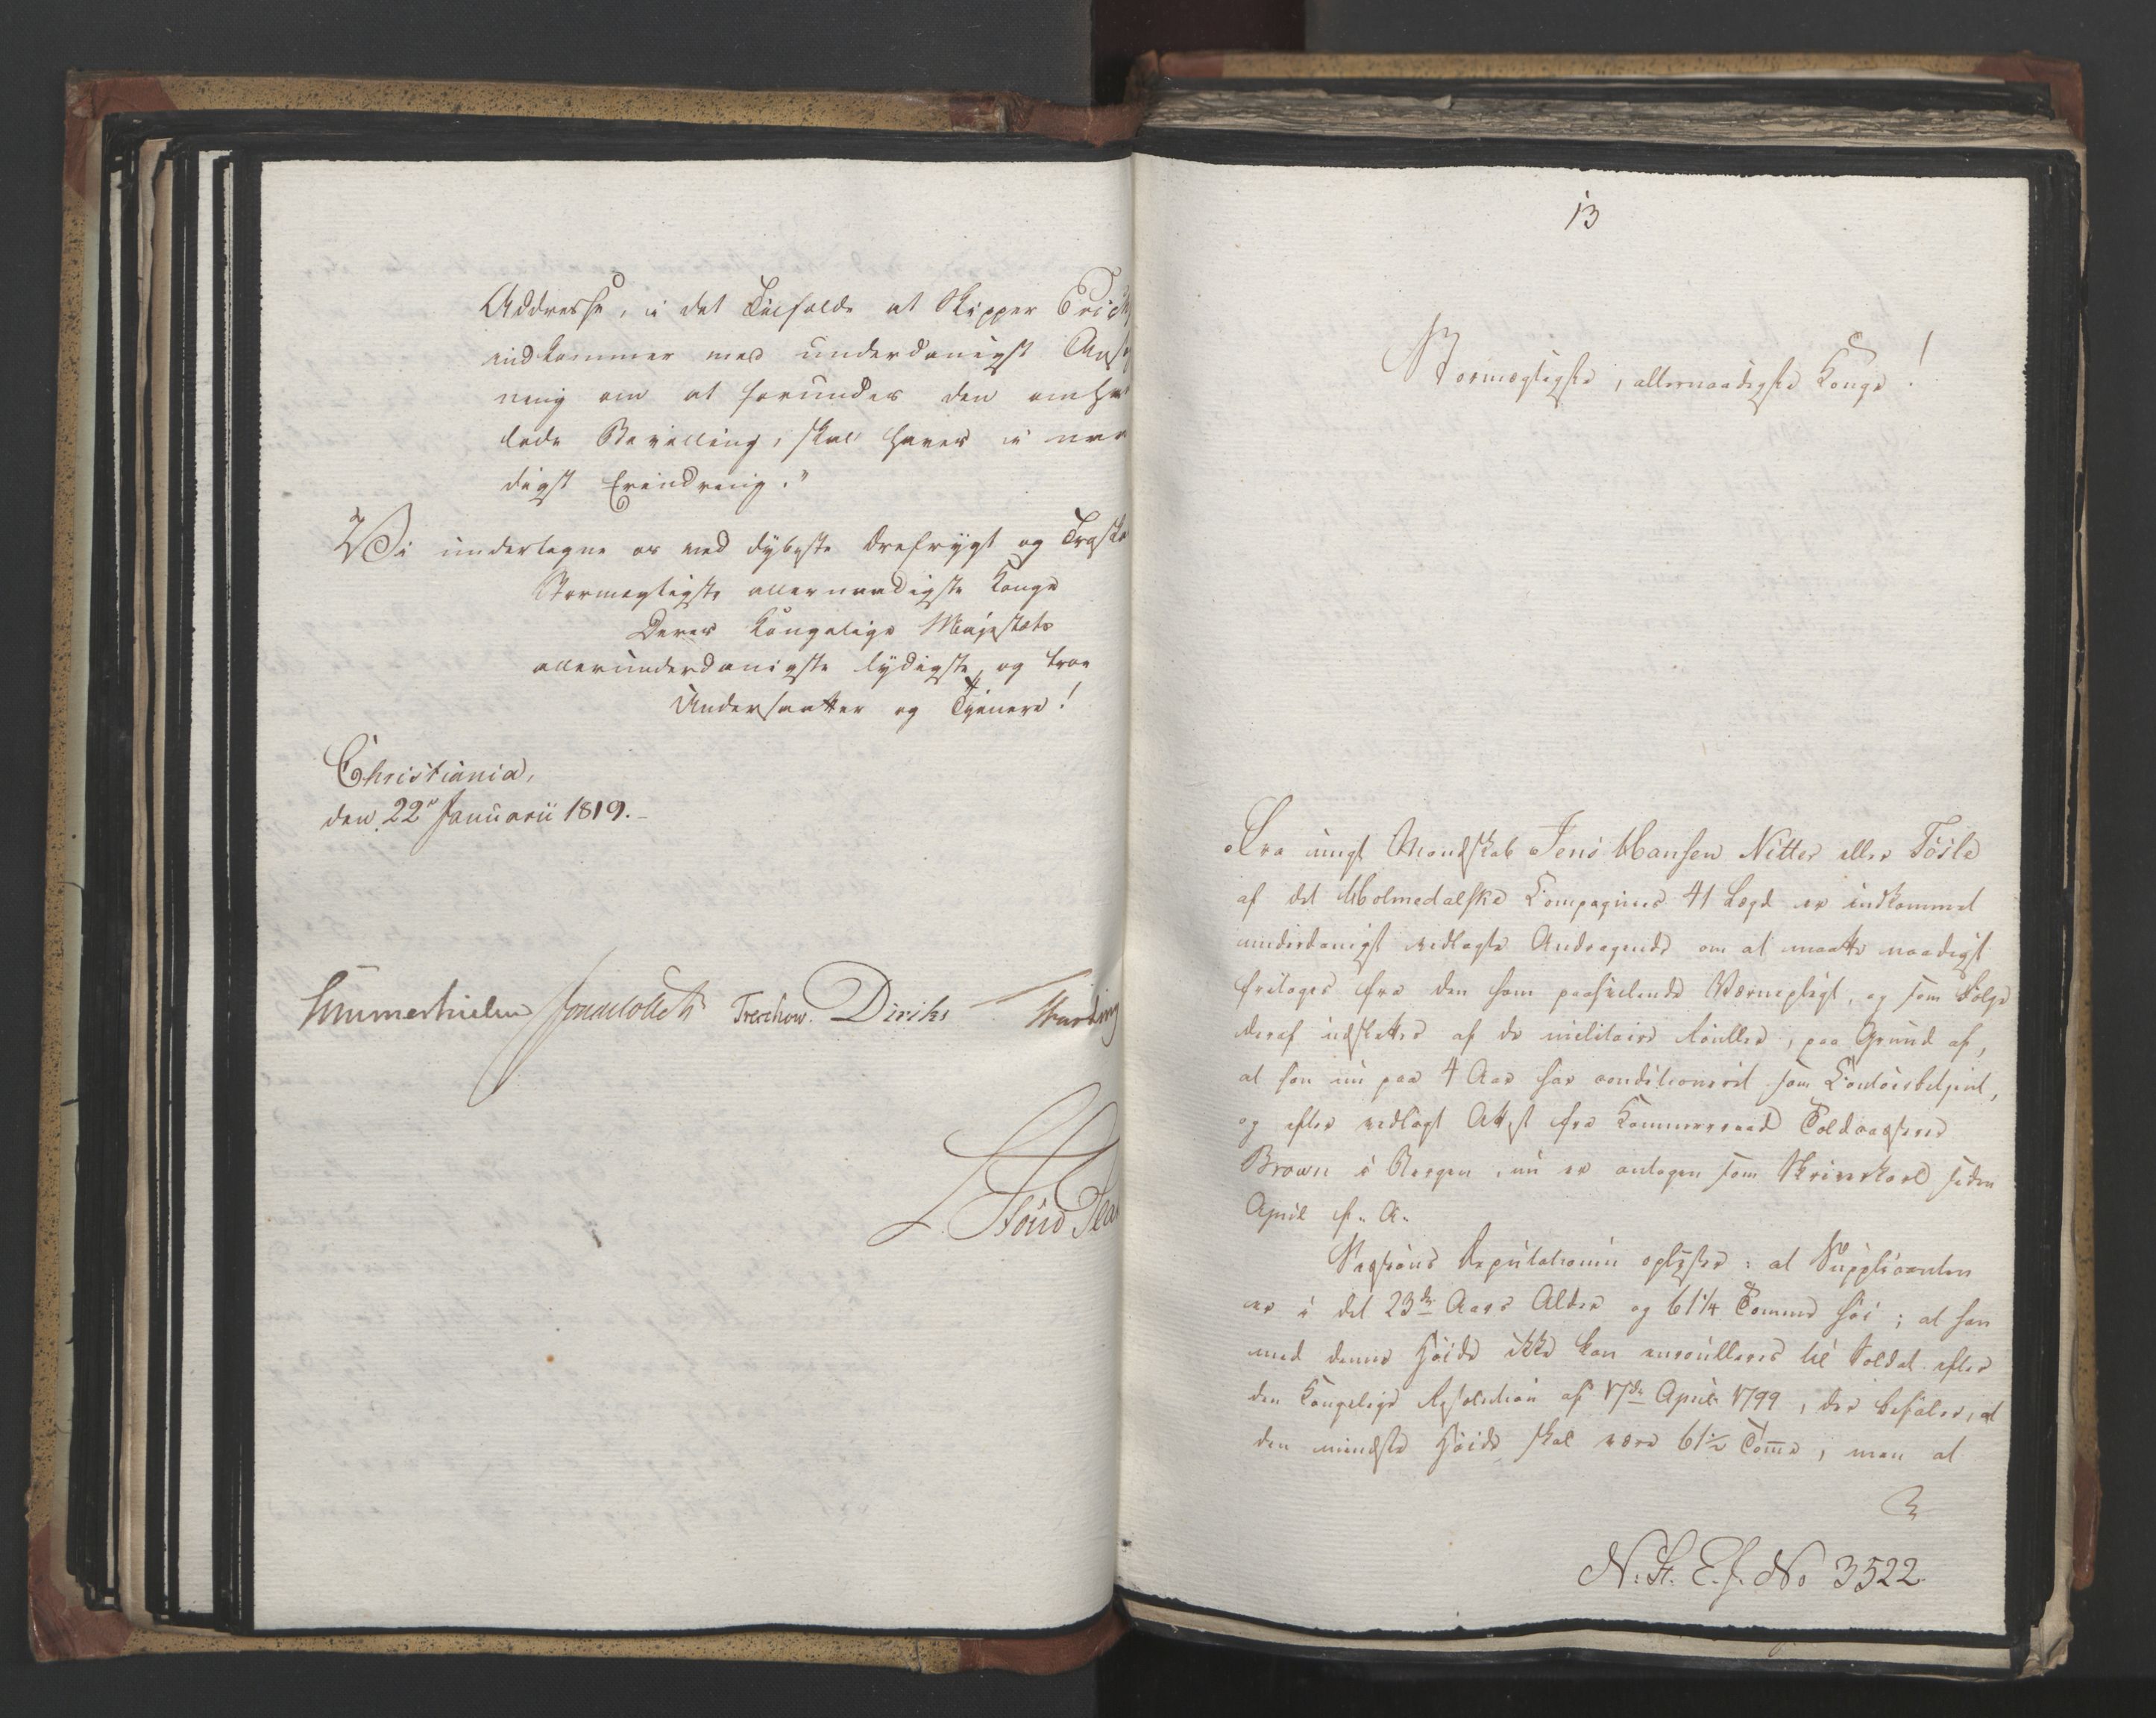 Addresse, i det Tilfælde at Skipper Erich
indkommer med underdanigst Ansø
ning om at forundes den omha
lede Bevilling, skal haves i naa
digst Erindring."
Vi undertegne os med dybeste Ærefrygt og Troeska
Stormægtigste allernaadigste Konge
Deres Kongelige Majestæts
allerunderdanigste lydigste og troe
Undersaatter og Tjenere!
Christiania,
den 22de Januarii 1819.
Sommerhielm Jonas Collett Treschow. Diriks
13
Stormægtigste, allernaadigste Konge!
Fra ungt Mandskab Jens Hansen Nitter eller Tösle
af det Holmedalske Compagnies 41 Lægd er indkommet
underdanigst vedlagte Andragende om at maatte naadigst
fritages fra den ham paahvilende Værnepligt, og som Følge
deraf udslettes af de militaire Rouller, paa Grund af,
at han nu paa 4 Aar har conditioneret som Contoirbetjent,
og efter vedlagt Attest fra Kammerraad Toldkasserer
Brown i Bergen, nu er antagen som Skriverkarl siden
April f. A.
Sessions Deputationen oplyser: at Supplicanten
er i det 23de Aars Alder og 61 1/4 Tomme høi; at han
med denne Høide ikke kan enroulleres til Soldat efter
den Kongelige Resolution af 17de April 1799, der befaler, at
den mindste Høide skal være 61 1/2 Tomme, men at
N. St. E. f. No 3522.